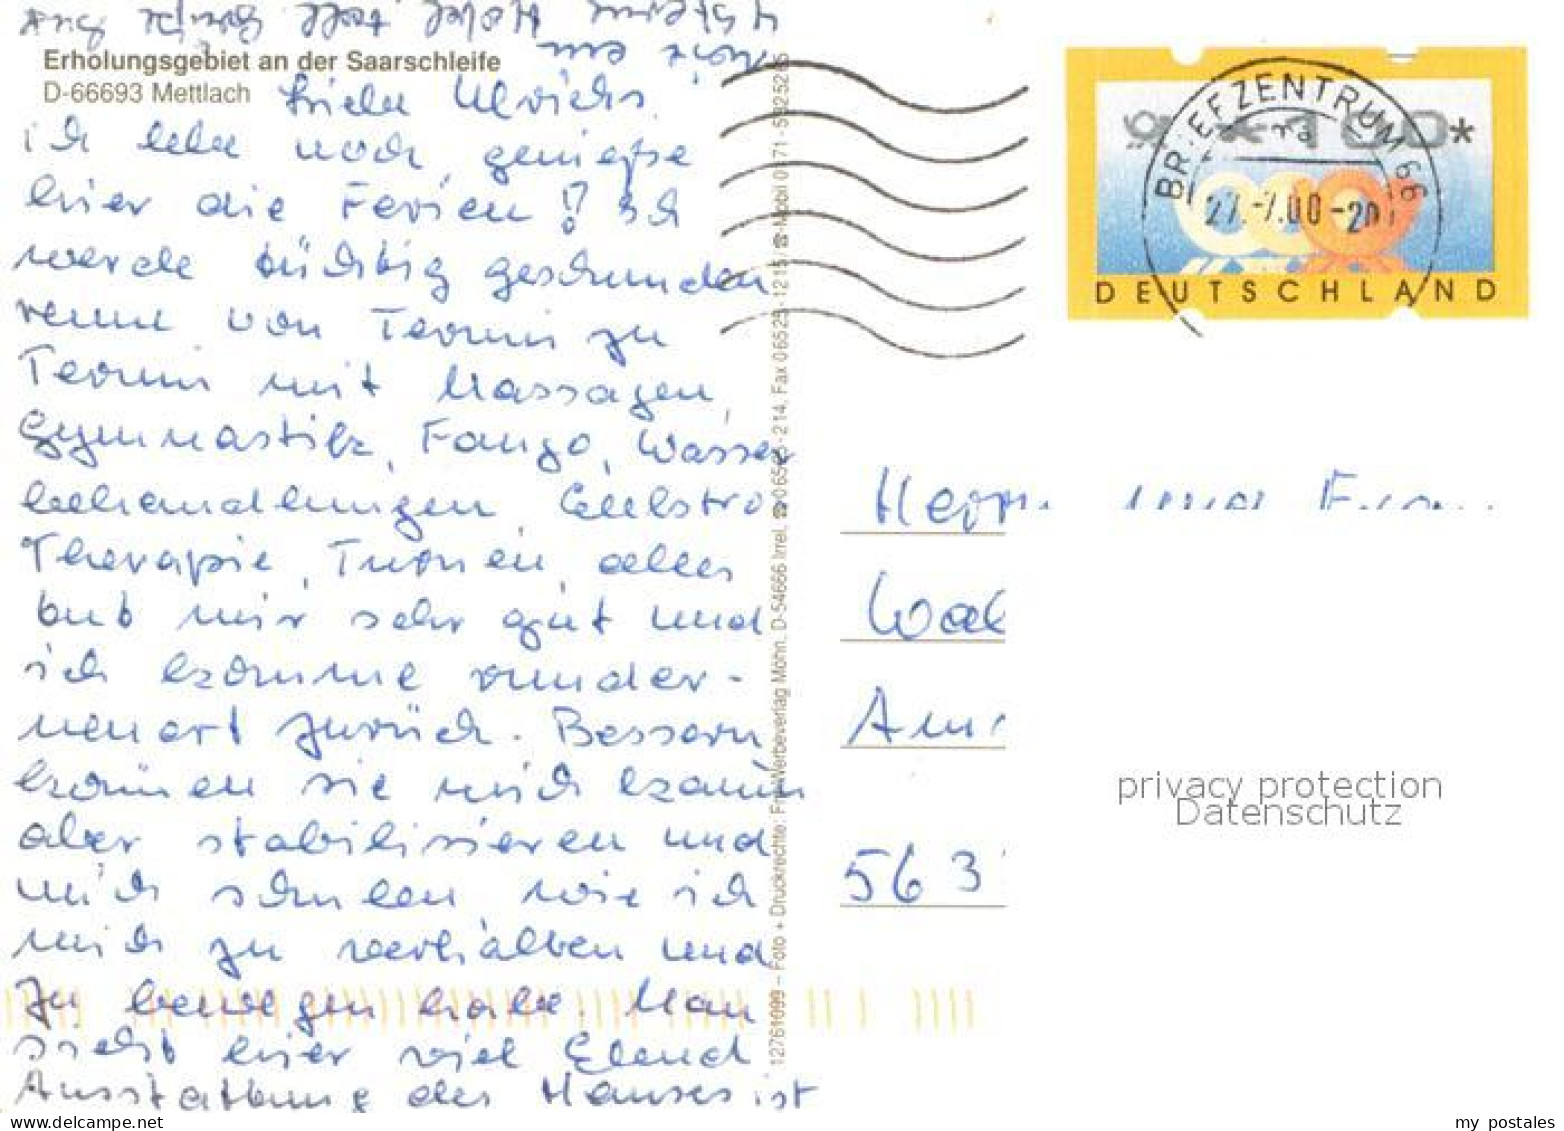 Erholungsgebiet an der Saarschleife
D-66693 Mettlach
Liebe Ulrichs
ich lebe noch, genieße
hier die Ferien! Ich
werde tüchtig geschunden
renne von Termin zu
Termin mit Massagen,
Gymnastik, Fango, Wasser
behandlungen, Elektro
Therapie, Turnen, alles
tut mir sehr gut und
ich komme runder-
neuert zurück. Bessern
können sie mich kaum
aber stabilisieren und
mich schulen, wie ich
mich zu verhalten und
zu bewegen habe. Man
sieht hier viel Elend
Ausstattung des Hauses ist
wie im
4 Sterne Hotel toll
12761099 – Foto + Druckrechte: Frei-Werbeverlag Möhn, D-54666 Irrel, ☎ 06525-214, Fax 06525-1215
BRIEFZENTRUM 66
DEUTSCHLAND
Herrn und Frau
Am
563
privacy protection
Datenschutz
my postales
delcampe.net